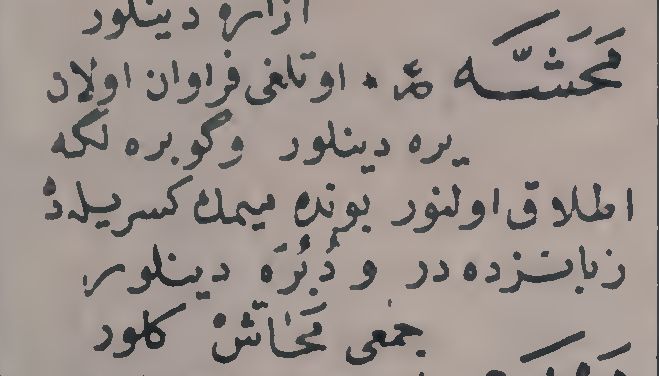 ازاره دینلور
مَحَشَّه اوتلغی فراوان اولان
یره دینلور وکوبره لکه
اطلاق اولنور بونده میمك کسریله ده
زبانزده در و دُبُرَه دینلور
جمعی مَحَاشّ کلور